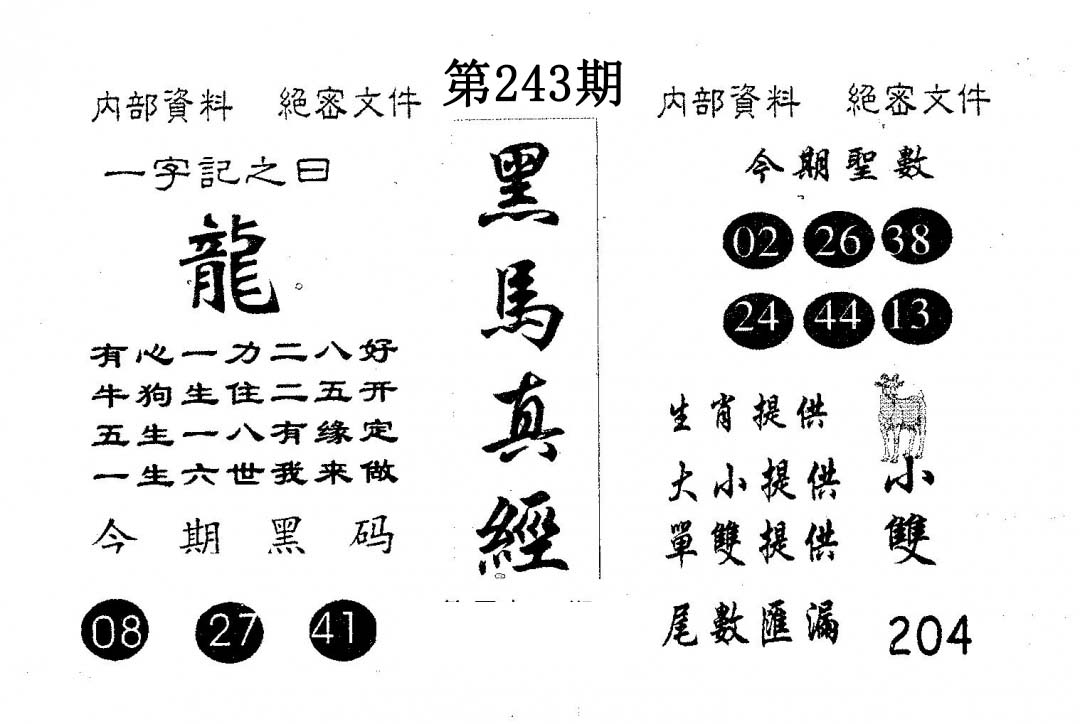 第243期
内部資料 絕密文件
一字記之曰
龍
有心一力二八好
牛狗生住二五开
五生一八有缘定
一生六世我来做
今期黑码
08 27 41
黑馬真經
内部資料 絕密文件
今期聖數
02 26 38
24 44 13
生肖提供
大小提供 小
單雙提供 雙
尾數匯漏 204